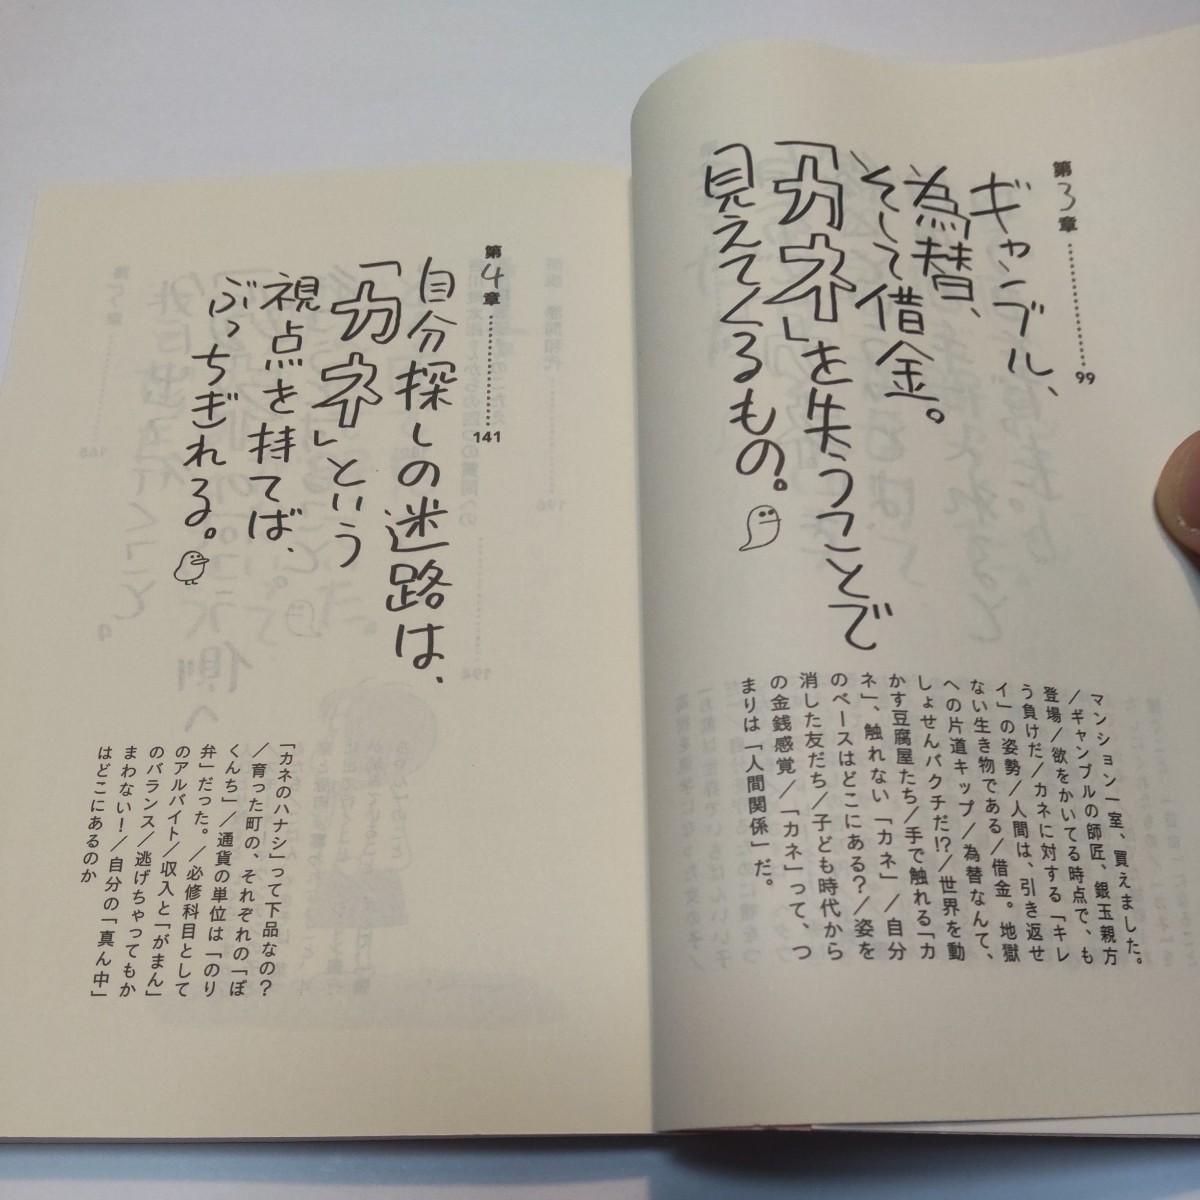 第3章
99
ギャンブル、
為替、
そして借金。
「カネ」を失うことで
見えてくるもの。
マンション一室、買えました。
／ギャンブルの師匠、銀玉親方
登場／欲をかいてる時点で、も
う負けだ／カネに対する「キレ
イ」の姿勢／人間は、引き返せ
ない生き物である／借金。地獄
への片道キップ／為替なんて、
しょせんバクチだ!?／世界を動
かす豆腐屋たち／手で触れる「カ
ネ」、触れない「カネ」／自分
のベースはどこにある？／姿を
消した友だち／子ども時代から
の金銭感覚／「カネ」って、つ
まりは「人間関係」だ。
第4章
141
自分探しの迷路は、
「カネ」という
視点を持てば、
ぶっちぎれる。
「カネのハナシ」って下品なの？
／育った町の、それぞれの「ぼ
くんち」／通貨の単位は「のり
弁」だった。／必修科目として
のアルバイト／収入と「がまん」
のバランス／逃げちゃってもか
まわない！／自分の「真ん中」
はどこにあるのか